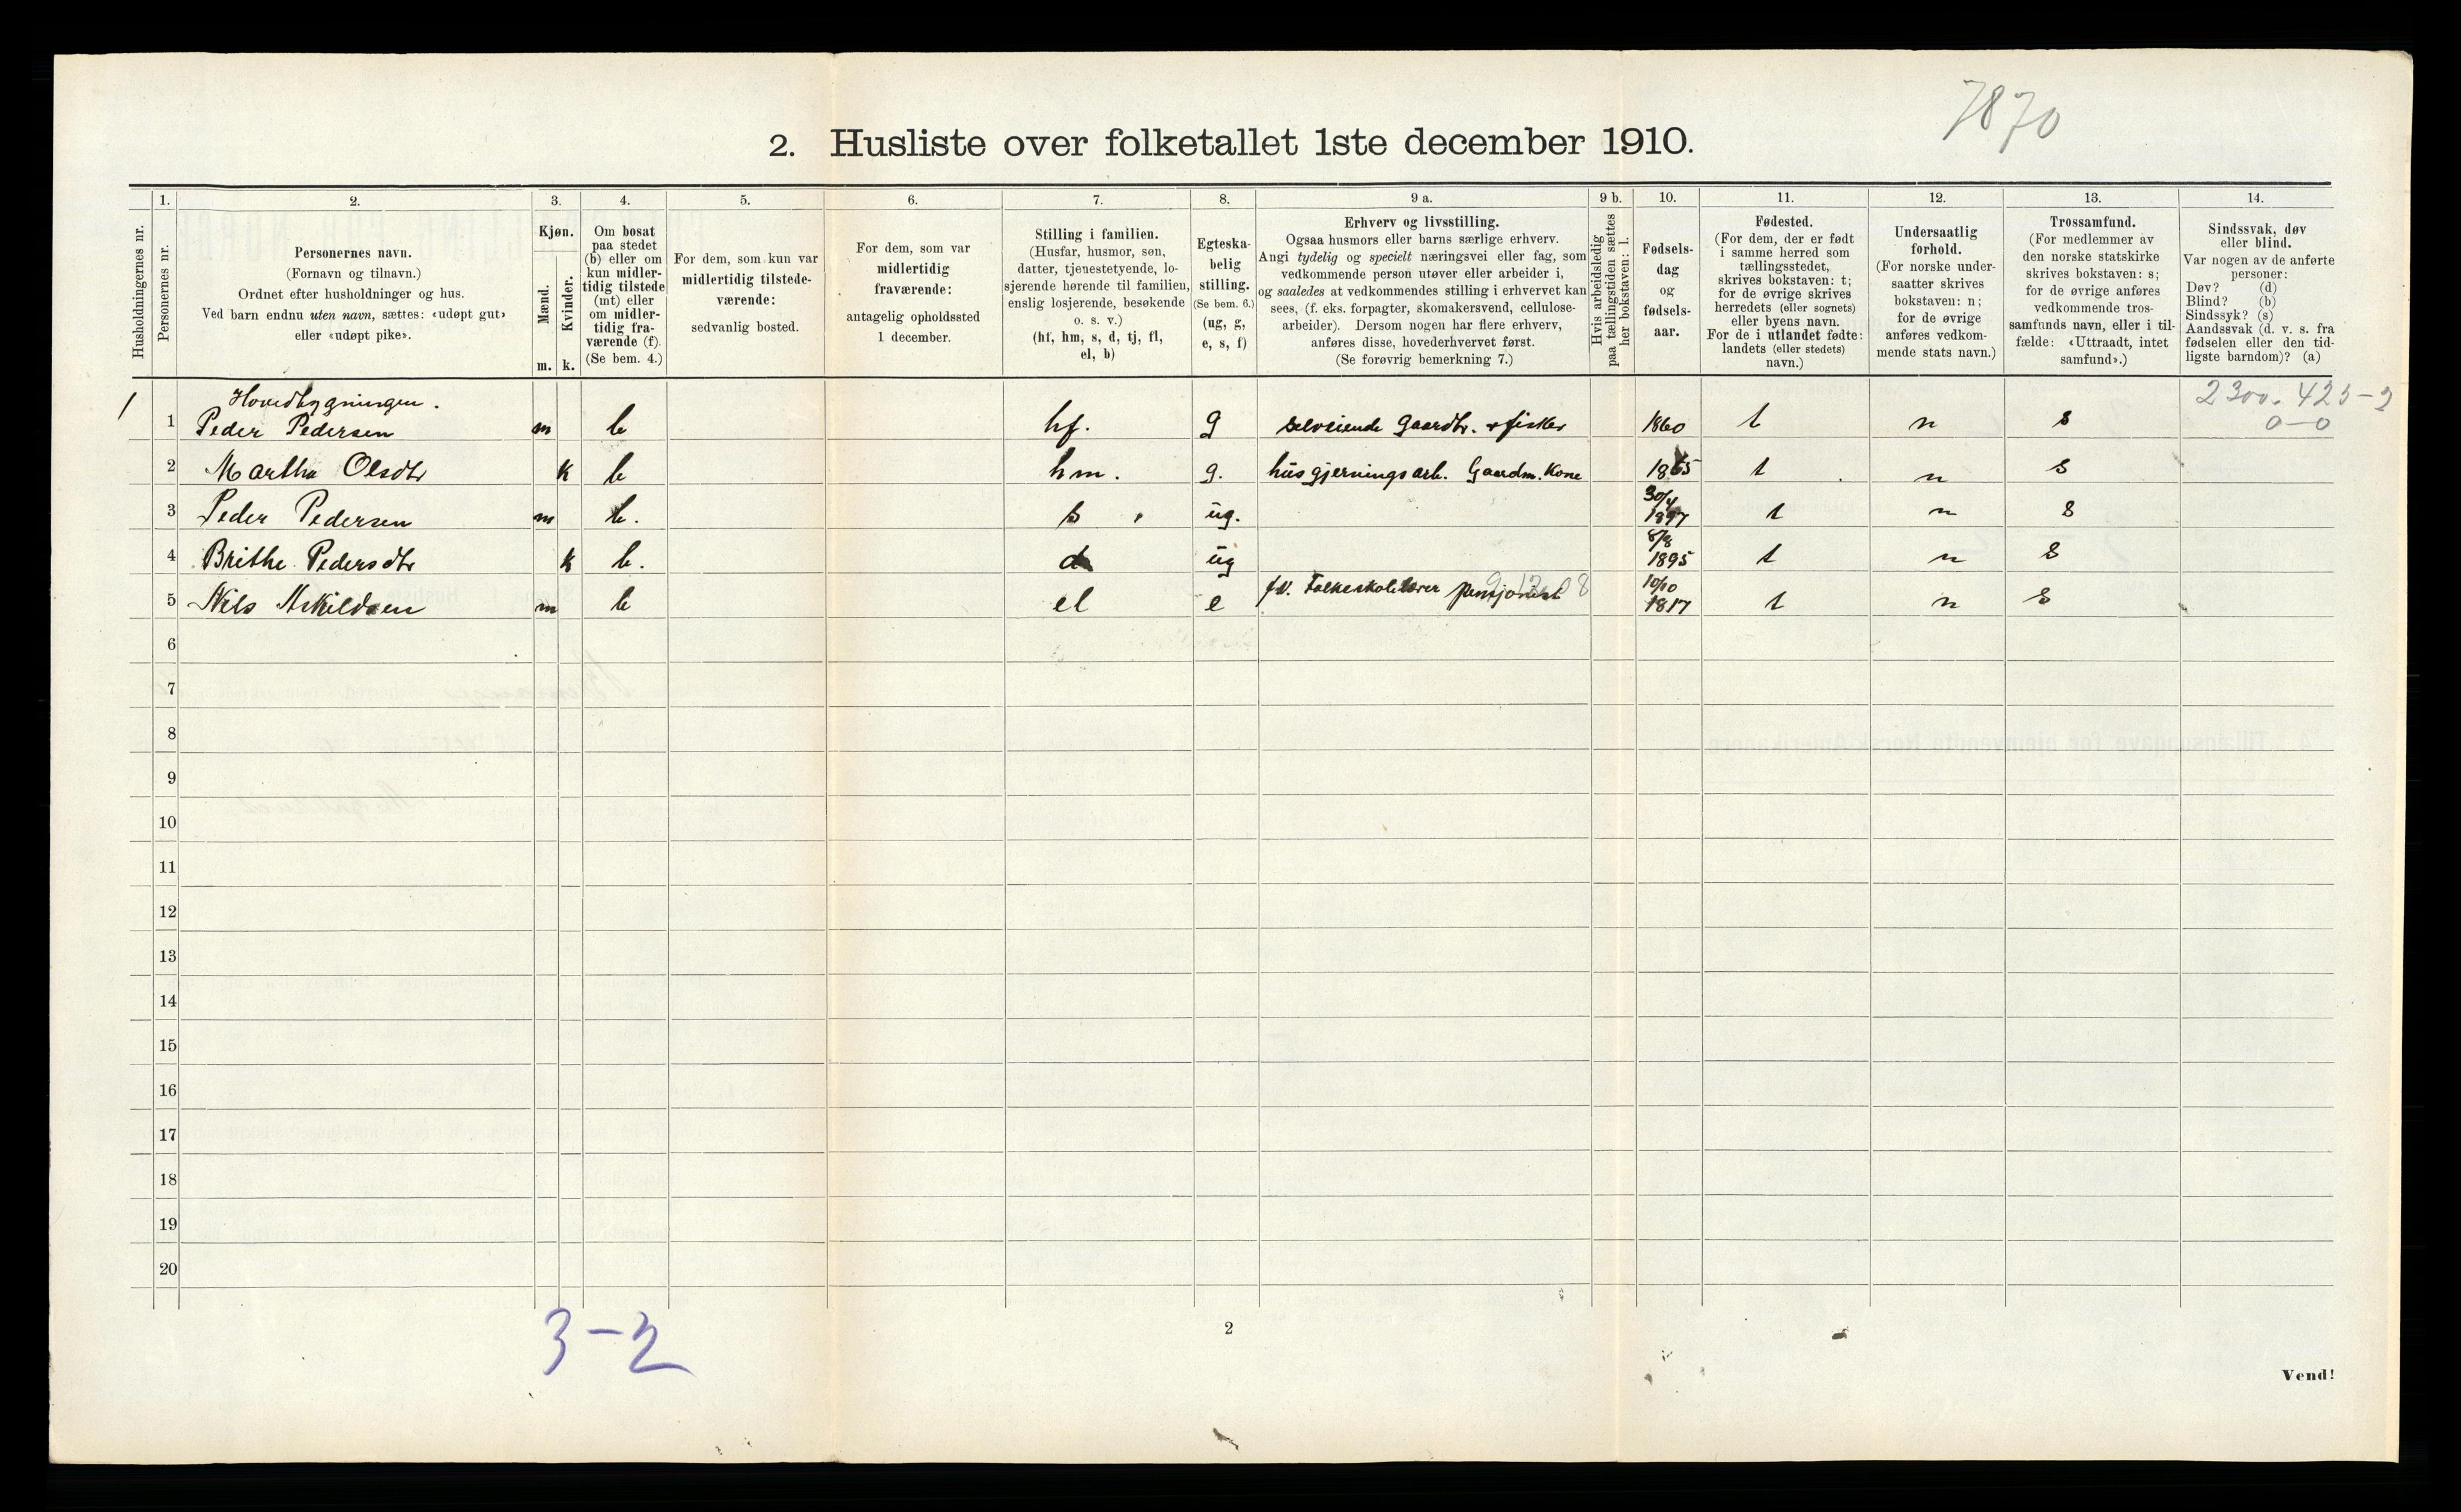 7870
2. Husliste over folketallet 1ste december 1910.
Husholdningernes nr.
1.
Personernes nr.
2.
Personernes navn.
(Fornavn og tilnavn.)
Ordnet efter husholdninger og hus.
Ved barn endnu uten navn, sættes: «udøpt gut»
eller «udøpt pike».
3.
Kjøn.
Mænd.
Kvinder.
m. k.
4.
Om bosat
paa stedet
(b) eller om
kun midler-
tidig tilstede
(mt) eller
om midler-
tidig fra-
værende (f).
(Se bem. 4.)
5.
For dem, som kun var
midlertidig tilstede-
værende:
sedvanlig bosted.
6.
For dem, som var
midlertidig
fraværende:
antagelig opholdssted
1 december.
7.
Stilling i familien.
(Husfar, husmor, søn,
datter, tjenestetyende, lo-
sjerende hørende til familien,
enslig losjerende, besøkende
o. s. v.)
(hf, hm, s, d, tj, fl,
el, b)
8.
Egteska-
belig
stilling.
(Se bem. 6.)
(ug, g,
e, s, f)
9 a.
Erhverv og livsstilling.
Ogsaa husmors eller barns særlige erhverv.
Angi tydelig og specielt næringsvei eller fag, som
vedkommende person utøver eller arbeider i,
og saaledes at vedkommendes stilling i erhvervet kan
sees, (f. eks. forpagter, skomakersvend, cellulose-
arbeider). Dersom nogen har flere erhverv,
anføres disse, hovederhvervet først.
(Se forøvrig bemerkning 7.)
9 b.
Hvis arbeidsledig
paa tællingstiden sættes
her bokstaven: l.
10.
Fødsels-
dag
og
fødsels-
aar.
11.
Fødested.
(For dem, der er født
i samme herred som
tællingsstedet,
skrives bokstaven: t;
for de øvrige skrives
herredets (eller sognets)
eller byens navn.
For de i utlandet fødte:
landets (eller stedets)
navn.)
12.
Undersaatlig
forhold.
(For norske under-
saatter skrives
bokstaven: n;
for de øvrige
anføres vedkom-
mende stats navn.)
13.
Trossamfund.
(For medlemmer av
den norske statskirke
skrives bokstaven: s;
for de øvrige anføres
vedkommende tros-
samfunds navn, eller i til-
fælde: «Uttraadt, intet
samfund».)
14.
Sindssvak, døv
eller blind.
Var nogen av de anførte
personer:
Døv? (d)
Blind? (b)
Sindssyk? (s)
Aandssvak (d. v. s. fra
fødselen eller den tid-
ligste barndom)? (a)
2300. 425-2
0-0
Hovedbygningen.
1 1 Peder Pedersen m b hf. g selveiende Gaardbr. + fisker 1860 t n s
2 Martha Olsdtr k b hm. g. husgjerningsarb. Gaardm. Kone 1865 t n s
3 Peder Pedersen m b. s ug. 30/4 1897 t n s
4 Brithe Pedersdtr k b. d ug 8/8 1895 t n s
5 Nils Askildsen m b el e fv. Folkeskolelærer pensjonist 10/10 1817 t n s
6
7
8
9
10
11
12
13
14
15
16
17
18
19
20
3-2
2
Vend!